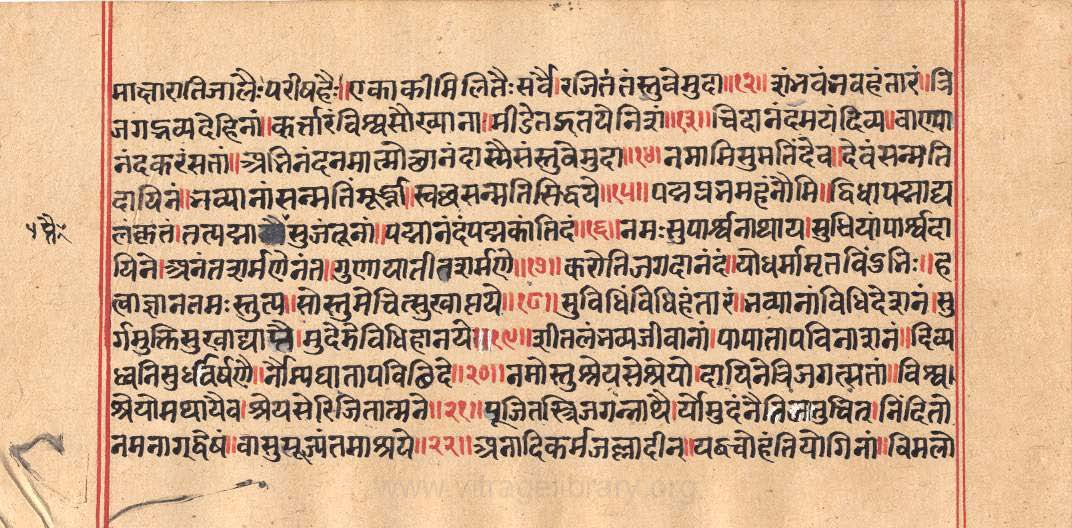 मोक्षारातिजालैः परीषहैः॥ एकाकीमिलितैः सर्वै रजितंतंस्तुवेमुदा॥१२॥ शंभवंभवहंतारं। त्रि
जगद्भव्यदेहिनां॥ कर्त्तारंविश्वसौख्यानां॥ मीडेतद्गतयेनिशं॥१३॥ चिदानंदमयंदिव्य॥ वाण्या
नंदकरंसतां॥ अभिनंदनमात्मोत्थानंदास्यैसंस्तुवेमुदा॥१४॥ नमामिसुमतिंदेव। देवंसन्मति
दायिनं॥ भव्यानांसन्मतिंमूर्द्ध्ना॥ स्वच्छसन्मतिसिद्धये॥१५॥ पद्मप्रभमहंनौमि॥ द्विधापद्माद्य
लंकृतं। तत्पद्मा सुजंतूनां॥ पद्मानंदंपद्मकांतिदं॥१६॥ नमःसुपार्श्वनाथाय। सुधियांपार्श्वदा
यिने। अनंतशर्मणेनंत। गुणायातीतशर्मणे॥१७॥ करोतिजगदानंदं। योधर्मामृतविंऽभिः॥ ह
त्वाज्ञानतमःस्तुत्य॥ सोस्तुमेचित्सुखाप्तये॥१८॥ सुविधिंविधिहंतारं॥ भव्यानांविधिदेशनं। सु
र्गमुक्तिसुखाद्याप्त्यै। मुदेतंविधिहानये॥१९॥ शीतलंभव्यजीवानां। पापातापविनाशनं॥ दिव्य
ध्वनिसुधावर्षिणं॥ नौम्यघातापविछिदे॥२०॥ नमोस्तुश्रेयसेश्रेयो। दायिनेत्रिजगत्सतां॥ विश्व।
श्रेयोमथायैव। श्रेयसेरिजितात्मने॥२१॥ पूजितस्त्रिजगन्नाथै। र्योमुदंनैति जातुचित्। निंदितो
नमनाग्द्वेषं॥ वासुसूज्यंतमाश्रये॥२२॥ अनादिकर्मजल्लादीन्। यद्वचोहंतियोगिनां॥ विमलो
www.vitragelibrary.org